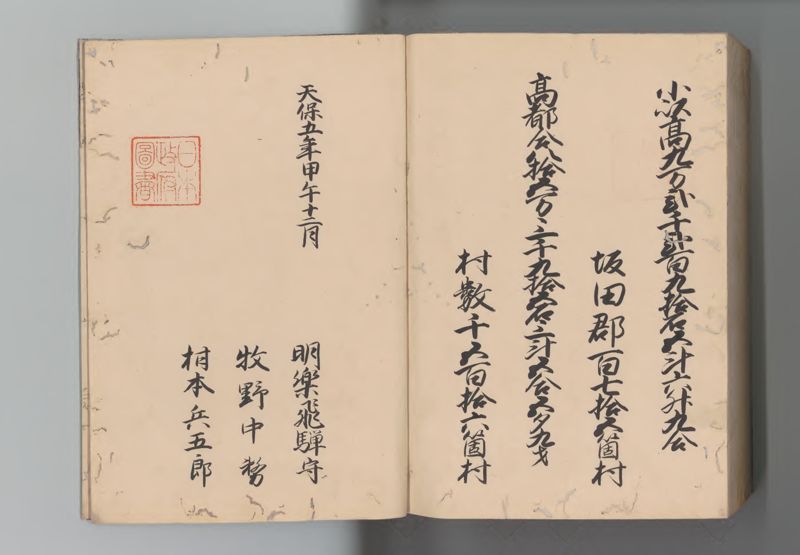 小以高九万弐千弐百九拾石五斗六升九合
坂田郡百七拾五箇村
高都合八拾五万三千九拾五石三斗五合五夕九才
村數千五百拾六箇村
天保五年甲午十二月
明樂飛騨守
牧野中務
柑本兵五郎
日本
政府
圖書